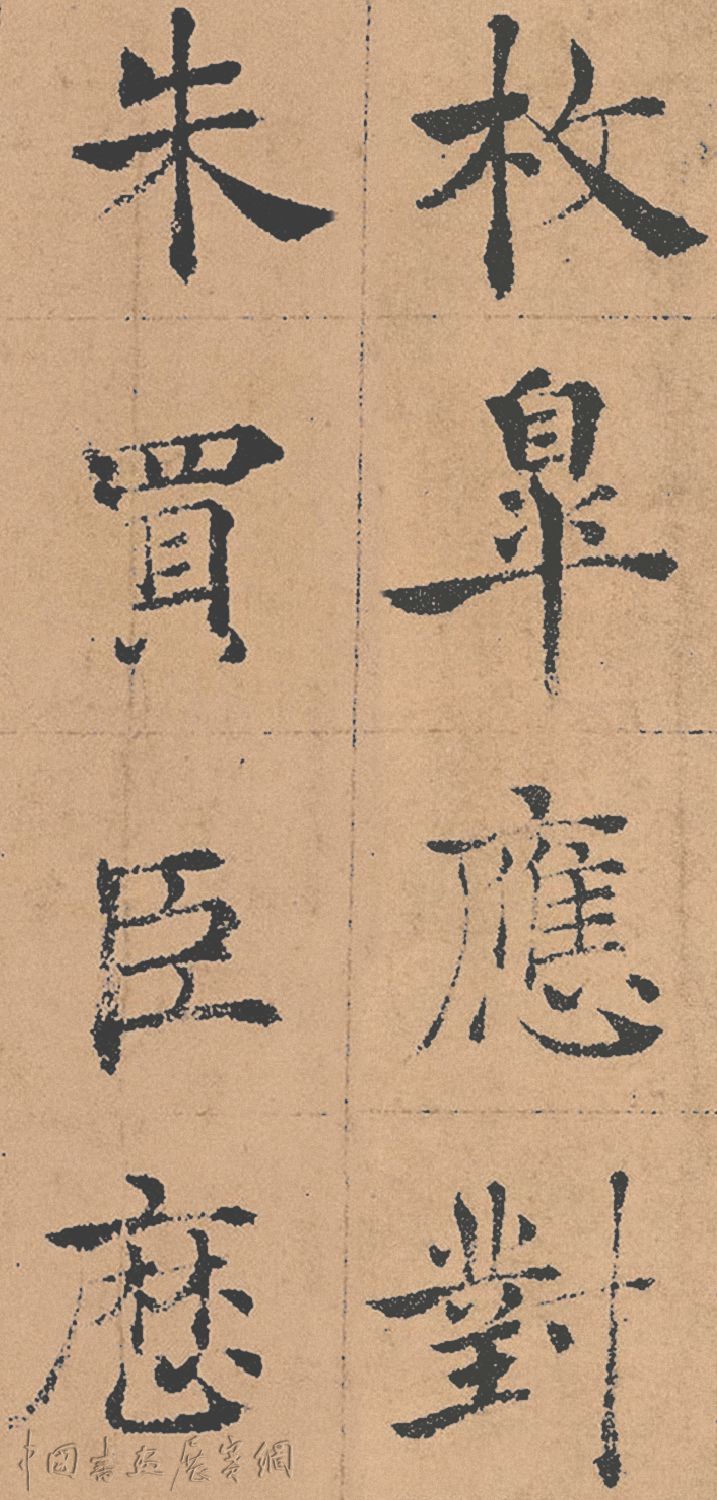 枚臯應對
朱買臣歷
中国書法展賽網